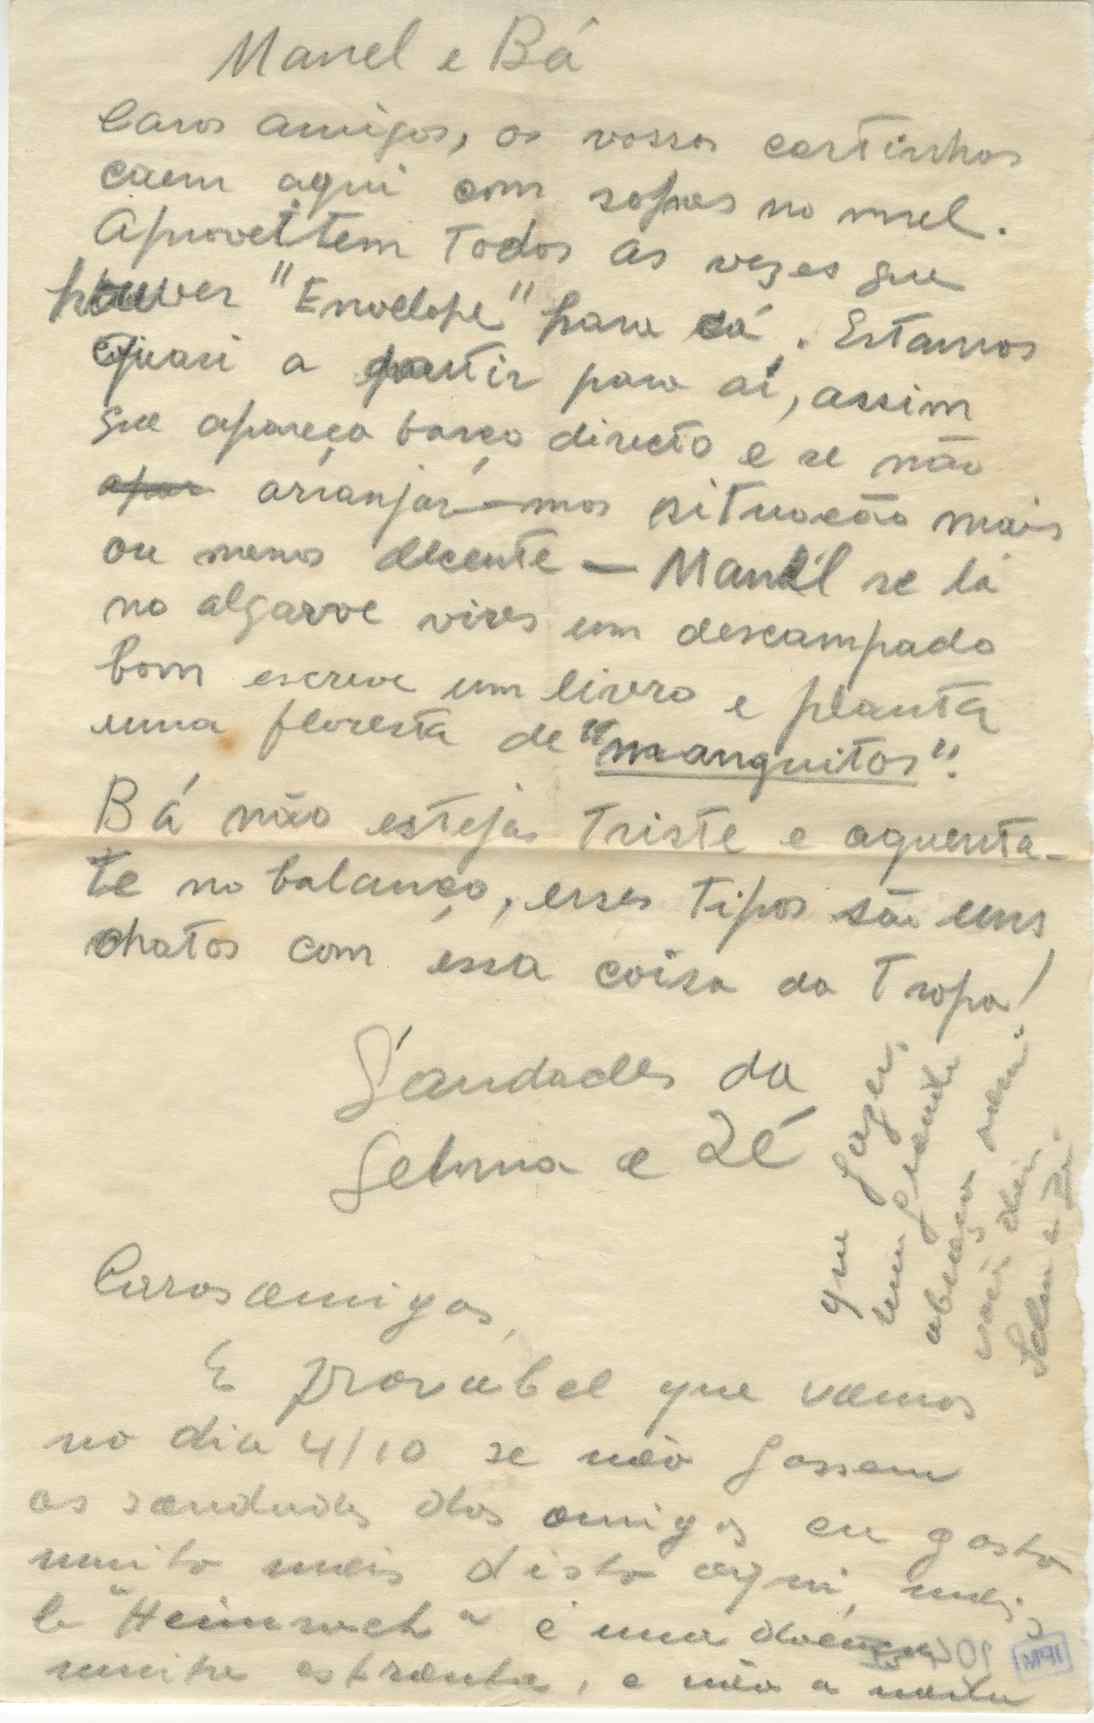 Manel e Bá
Caros amigos, as vossas cartinhas
caem aqui com sopas no mel.
Aproveitem todas as vezes que
houver "Envelope" para cá. Estamos
quasi a partir para aí, assim
que apareça barco directo e se não
apar arranjár-mos situação mais
ou menos decente — Manél se lá
no algarve vires um descampado
bom escreve um livro e planta
uma floresta de "manguitos".
Bá não estejas triste e aguenta-
te no balanço, esses tipos são uns
chatos com éssa coisa da Tropa!
Saudades da
Selma e Zé
Caros amigos,
E provabel que vamos
no dia 4/10 se não fossem
as saudades dos amigos eu gosto
muito mais disto aqui, mas
"Heimweh" é uma doença
muito estranha, e não a nada
que fazer,
um grande
abraço
Selma e Zé